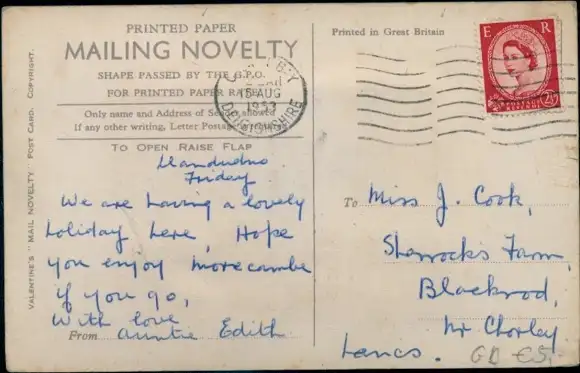 PRINTED PAPER
MAILING NOVELTY
SHAPE PASSED BY THE G.P.O.
FOR PRINTED PAPER RATE
Only name and Address of Sender allowed
if any other writing, Letter Postage
TO OPEN RAISE FLAP
Llandudno
Friday
We are having a lovely
holiday here, Hope
you enjoy morecambe
if you go,
With love
From Auntie Edith
VALENTINE'S "MAIL NOVELTY" POST CARD. COPYRIGHT.
Printed in Great Britain
E R
2½
BAY
15 AUG
1953
DENBIGHSHIRE
To Miss J. Cook,
Sharrock's Farm,
Blackrod,
Nr Chorley
Lancs.
GB €5,-